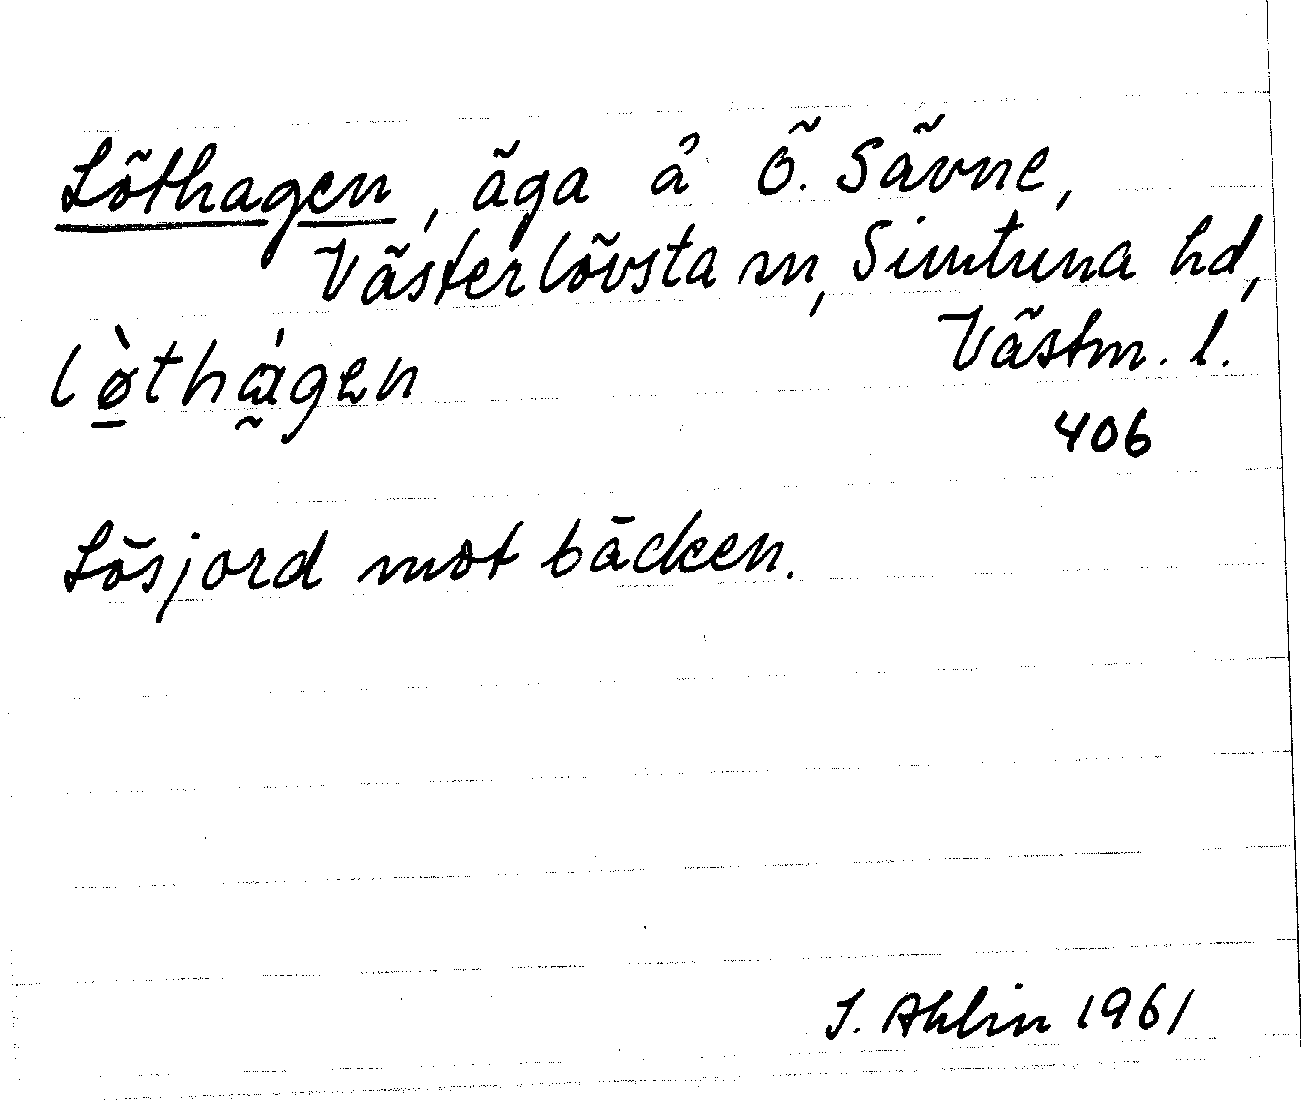 Löthagen, äga å Ö. Sävne,
Västerlövsta sn, Simtuna hd,
Västm. l.
lø̠̀thá̰gen
406
Lösjord mot bäcken.
I. Ahlin 1961